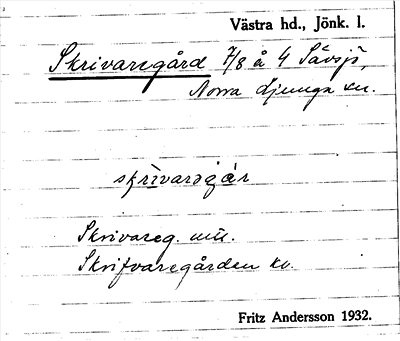 Västra hd., Jönk. l.
Skrivaregård 7/8 å 4 Sävsjö,
Norra Ljunga sn.
skrìvarəgár
Skrivareg. mtl.
Skrifvaregården kv.
Fritz Andersson 1932.